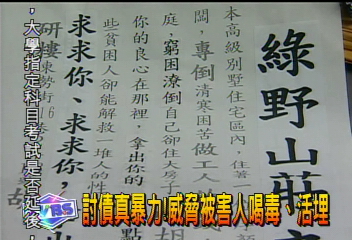 綠野山莊
本高級別墅住宅區內，住著
闆，專倒清寒困苦做工人
庭，窮困潦倒自己卻住大房子
你的良心在那裡，拿出你的
些貧困人卻能解救一堆人的性
求求你、求求你，
研樓東勢街16巷
胡
，大學指定科目考試是否延後，
討債真暴力!威脅被害人喝毒、活埋